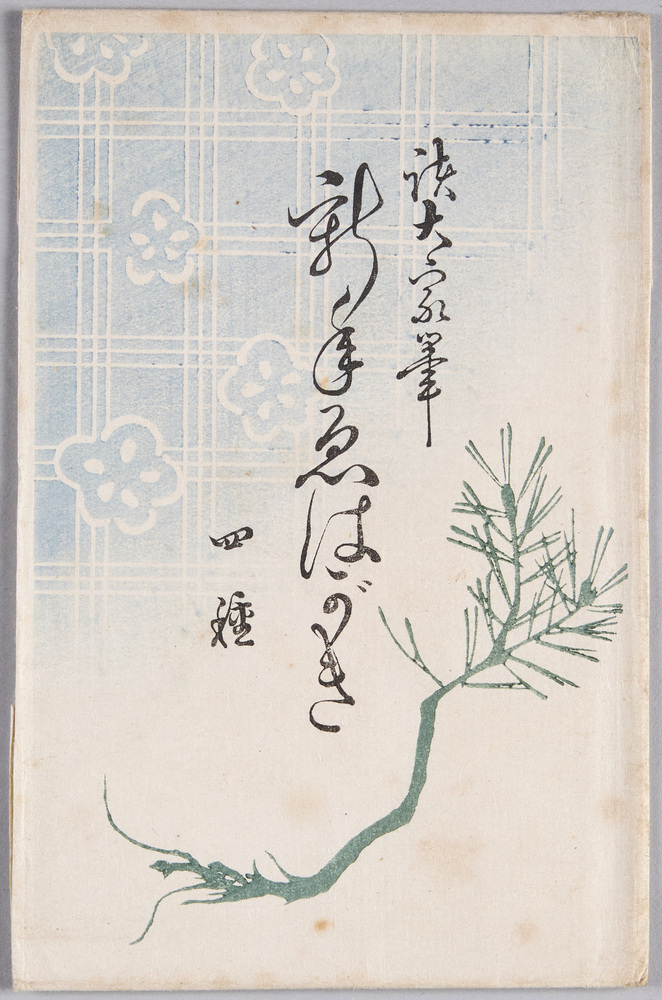 諸大家筆
新年ゑはがき
四種